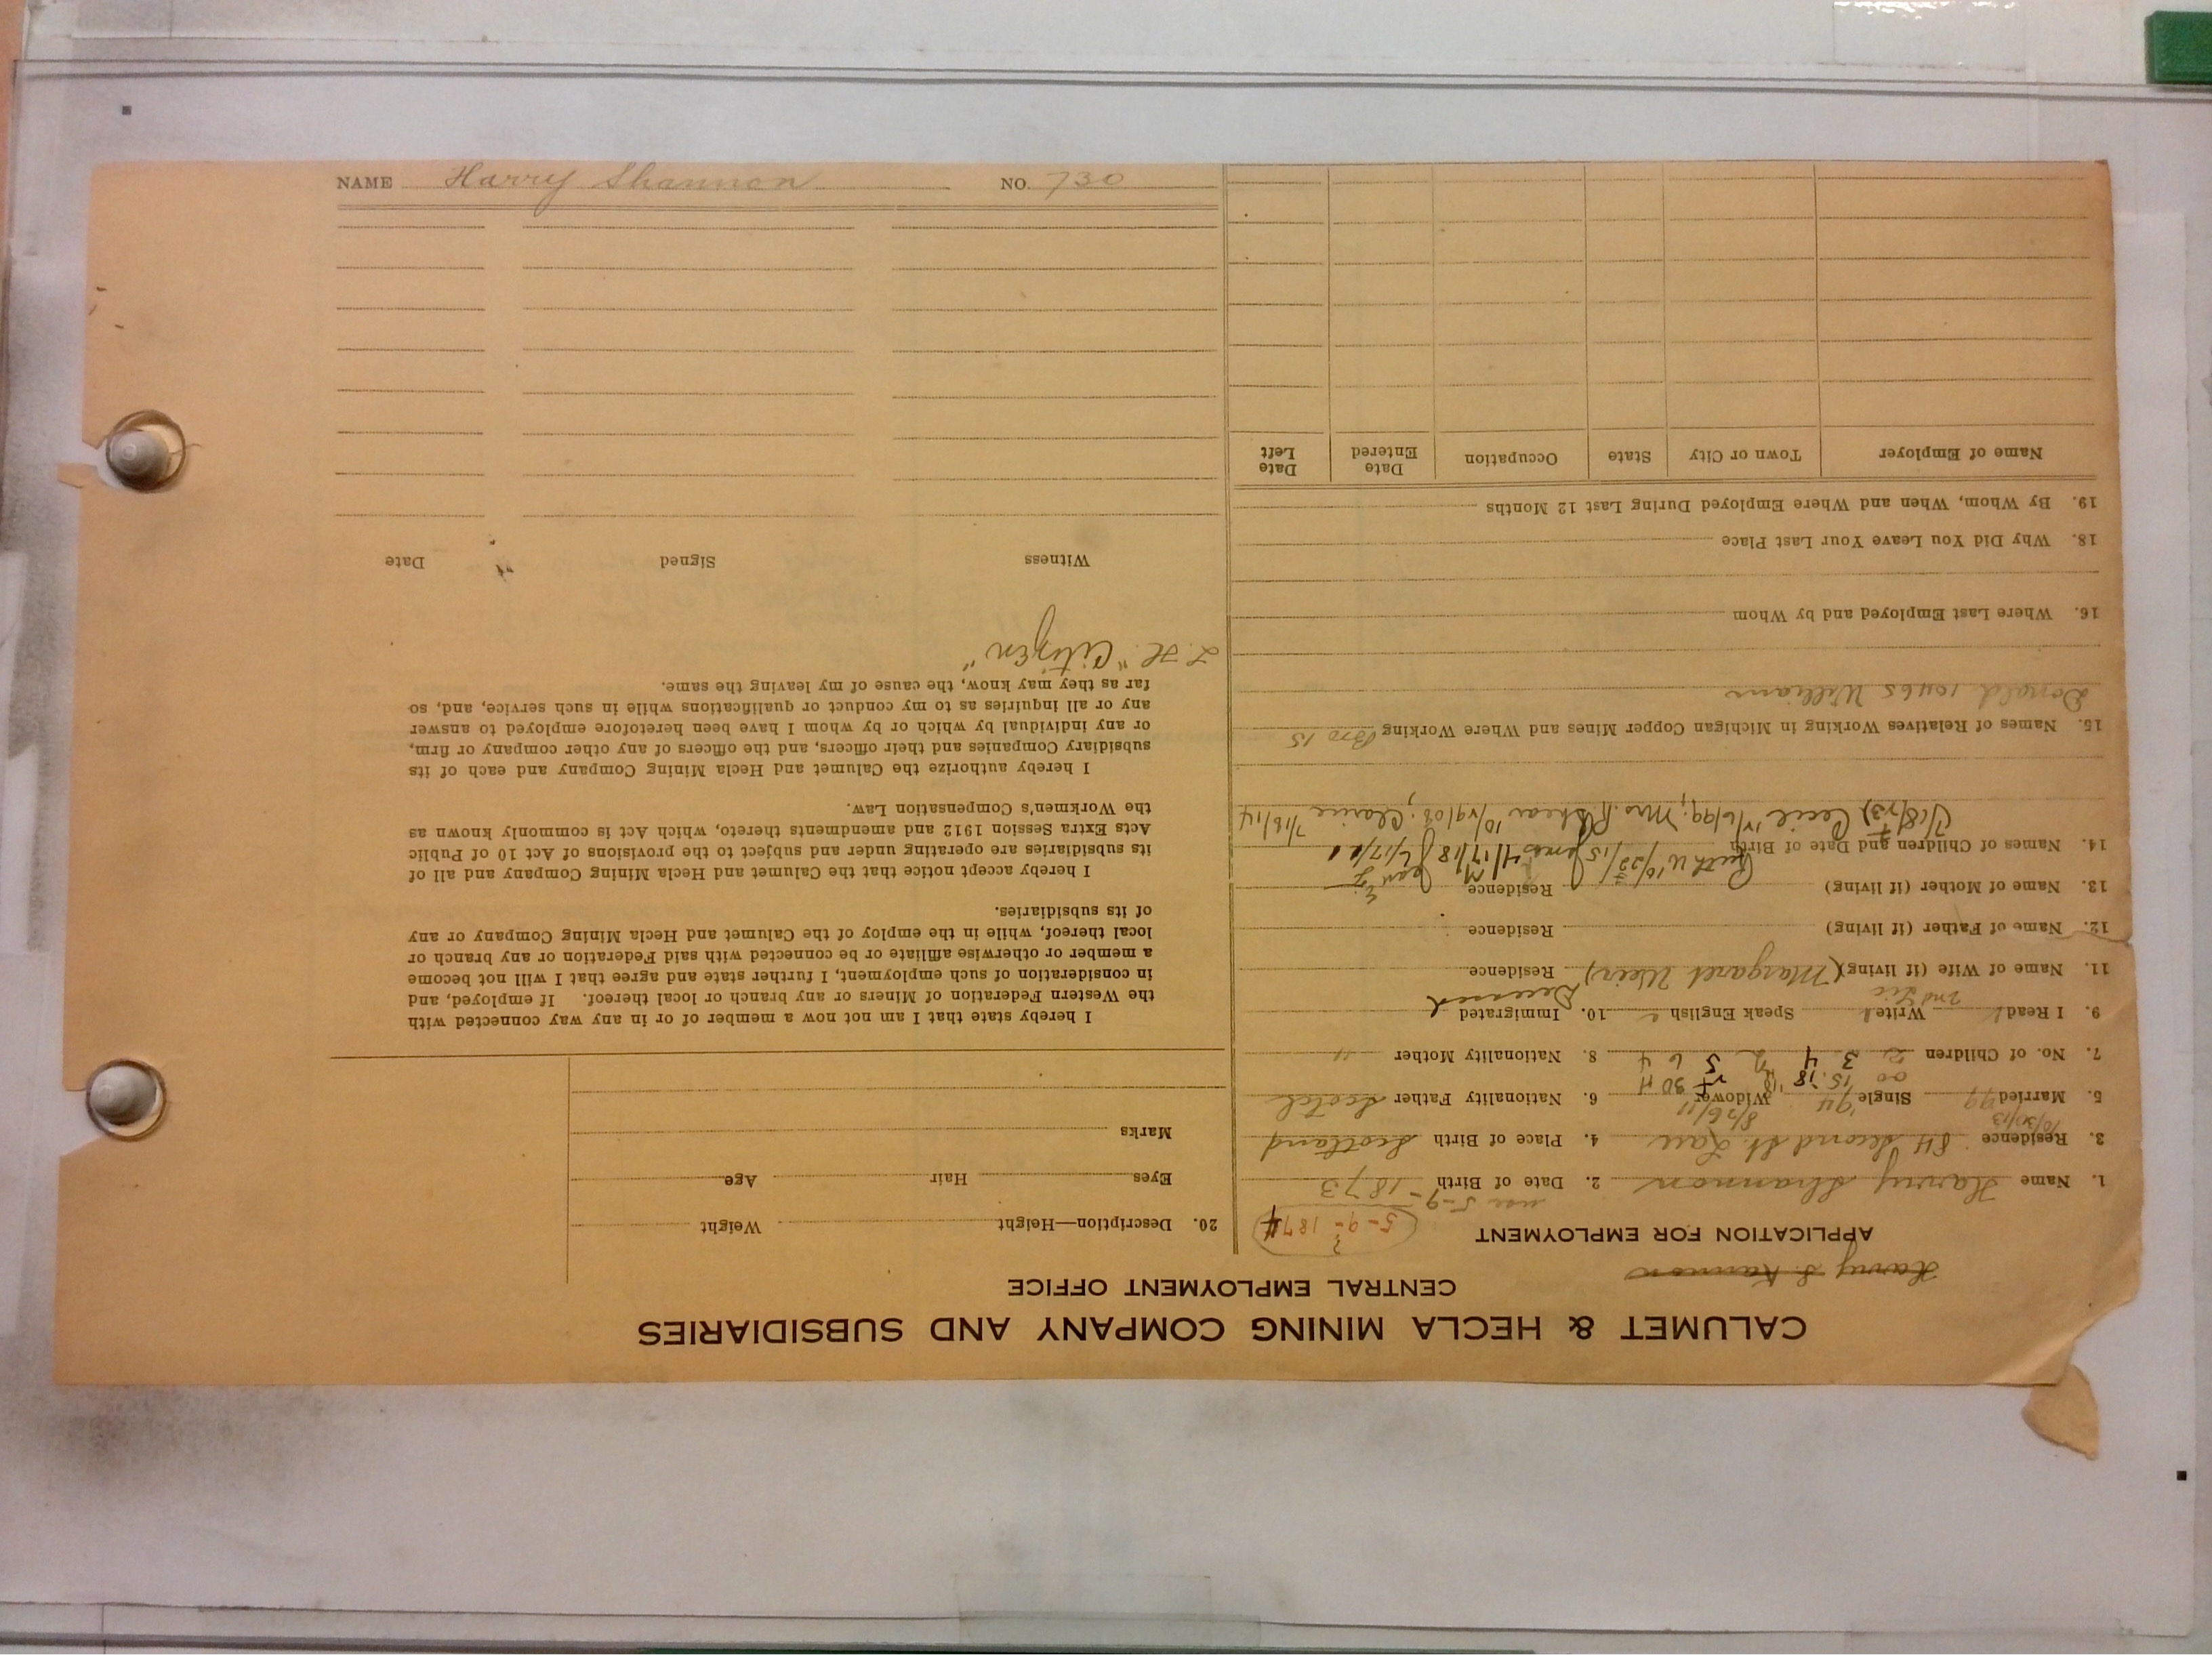 CALUMET & HECLA MINING COMPANY AND SUBSIDIARIES
CENTRAL EMPLOYMENT OFFICE
Harry S. Kannon
APPLICATION FOR EMPLOYMENT
5-9-1874
?
use 5-9-
1. Name Harry Shannon 2. Date of Birth 1873
3. Residence 84 Second St. Laur 4. Place of Birth Scotland
10/30/13 8/26/11
5. Married 99 Single '94 Widower 6. Nationality Father Scotch
00 15. 18 '18 30 H
7. No. of Children 2 3 4 2 5 6 4 8. Nationality Mother "
9. I Read Write Speak English 10. Immigrated
2nd Deceased
11. Name of Wife (if living) (Margaret Weir) Residence
12. Name of Father (if living) Residence
13. Name of Mother (if living) Residence
Ruth 10/22/15 James 4/17/18 Jean 6/17/
14. Names of Children and Date of Birth
7/18/73) Cecil 1/6/99; Mrs. R. Shear 10/29/08; Clarice 7/18/14
15. Names of Relatives Working in Michigan Copper Mines and Where Working Bro 15
Donald 10465 William
16. Where Last Employed and by Whom
18. Why Did You Leave Your Last Place
19. By Whom, When and Where Employed During Last 12 Months
Name of Employer Town or City State Occupation Date Entered Date Left
20. Description—Height Weight
Eyes Hair Age
Marks
I hereby state that I am not now a member of or in any way connected with
the Western Federation of Miners or any branch or local thereof. If employed, and
in consideration of such employment, I further state and agree that I will not become
a member or otherwise affiliate or be connected with said Federation or any branch or
local thereof, while in the employ of the Calumet and Hecla Mining Company or any
of its subsidiaries.
I hereby accept notice that the Calumet and Hecla Mining Company and all of
its subsidiaries are operating under and subject to the provisions of Act 10 of Public
Acts Extra Session 1912 and amendments thereto, which Act is commonly known as
the Workmen's Compensation Law.
I hereby authorize the Calumet and Hecla Mining Company and each of its
subsidiary Companies and their officers, and the officers of any other company or firm,
or any individual by which or by whom I have been heretofore employed to answer
any or all inquiries as to my conduct or qualifications while in such service, and, so
far as they may know, the cause of my leaving the same.
L. H. "Citizen"
Witness Signed Date
NAME Harry Shannon NO. 730